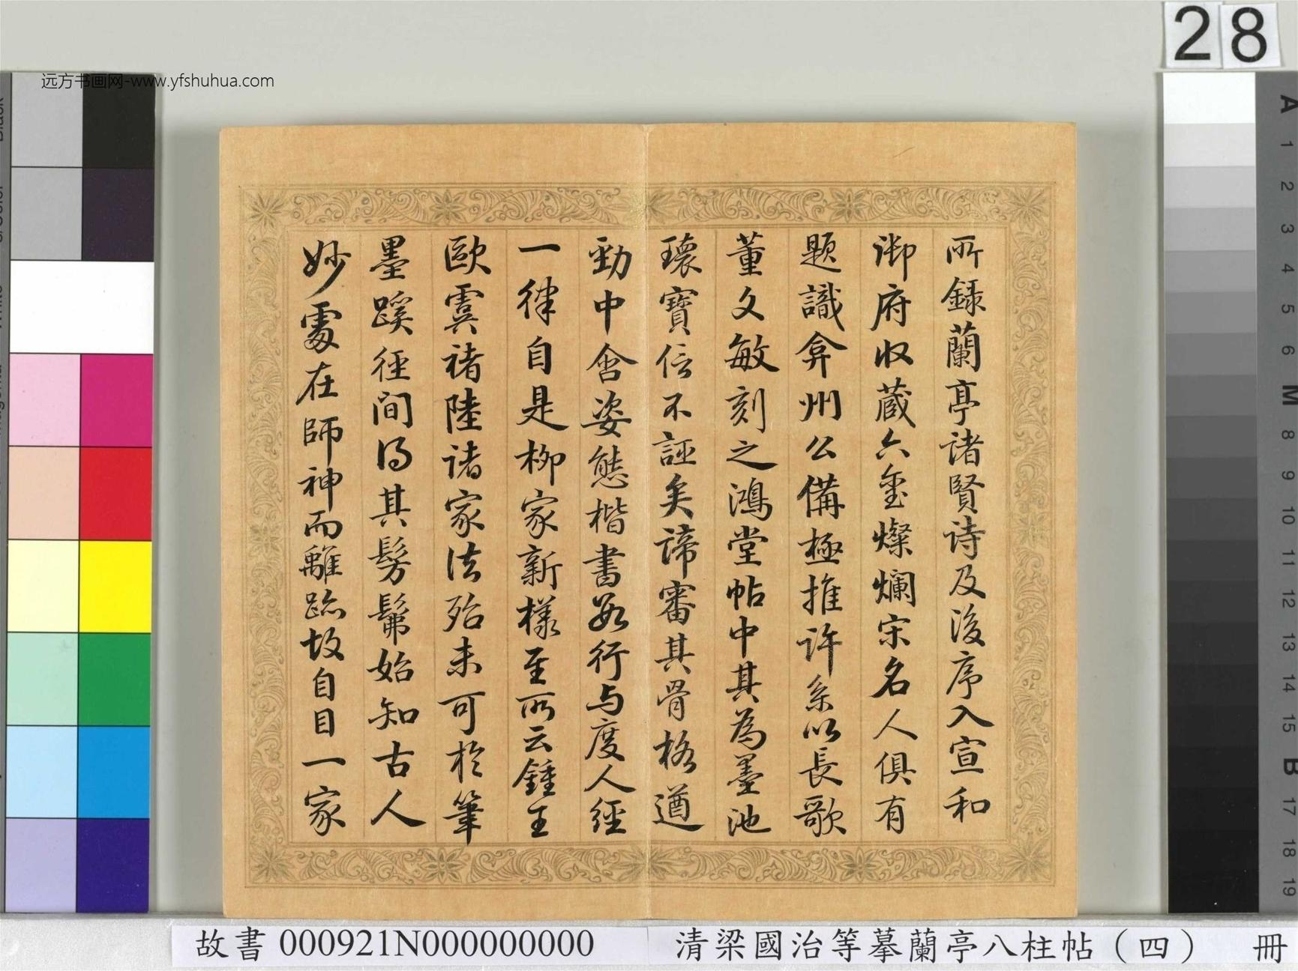 28
远方书画网-www.yfshuhua.com
所錄蘭亭諸賢诗及後序入宣和
御府收蔵六璽燦爛宋名人俱有
题識弇州公備極推许系以長歌
董文敏刻之鴻堂帖中其為墨池
瓌寶信不誣矣諦審其骨格遒
勁中含姿態楷書數行与度人經
一律自是柳家新樣至所云鍾王
歐虞褚陸诸家法殆未可於筆
墨蹊徑间得其髣髴始知古人
妙處在師神而離跡故自目一家
A 1 2 3 4 5 6 M 8 9 10 11 12 13 14 15 B 17 18 19
故書 000921N000000000
清梁國治等摹蘭亭八柱帖（四） 冊